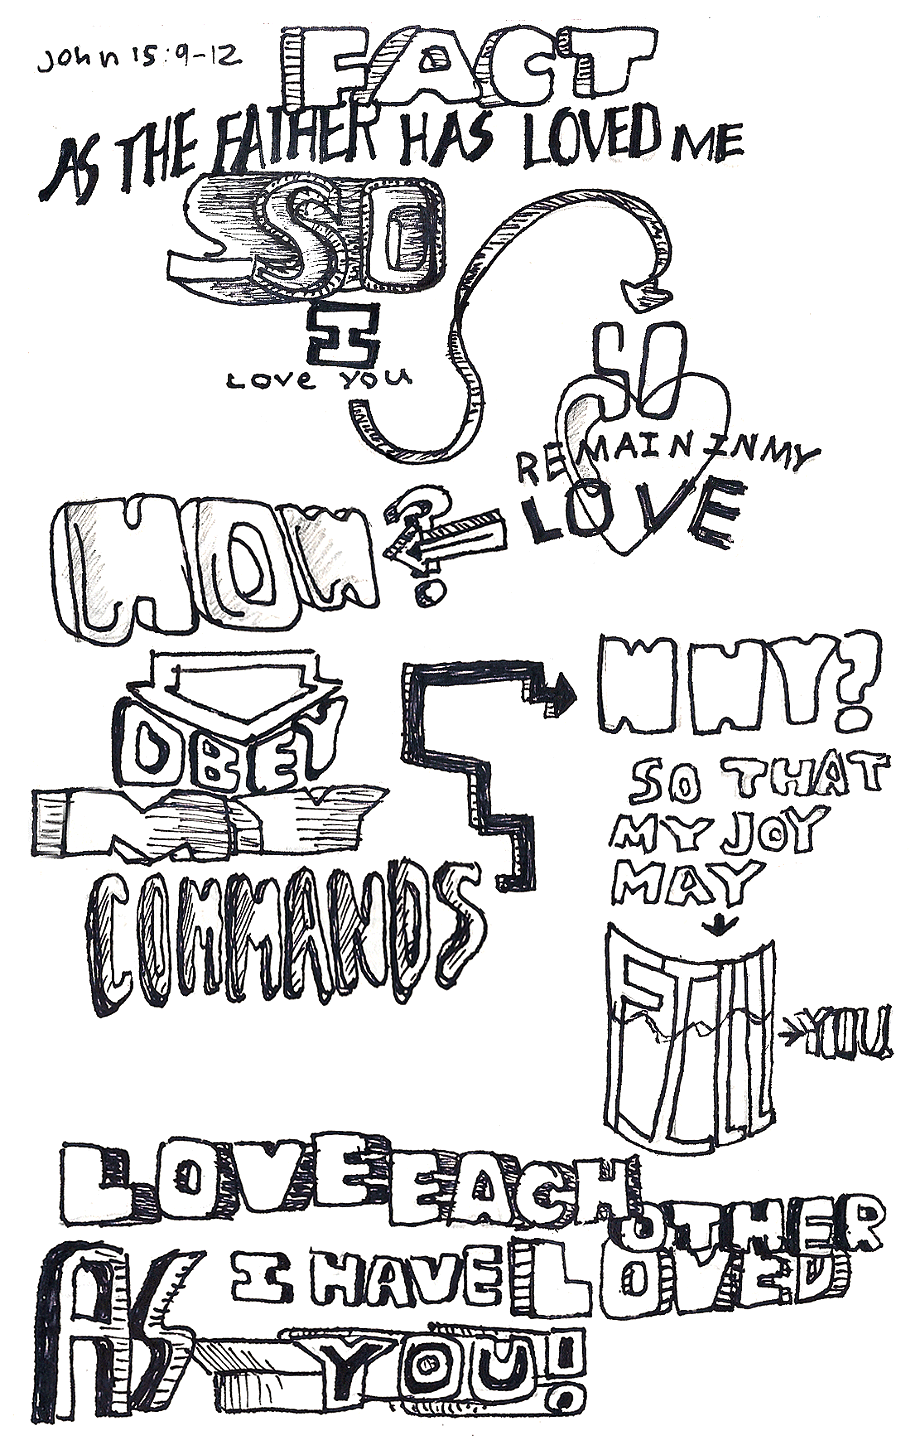 John 15:9-12
FACT
AS THE FATHER HAS LOVED ME
SO
I
LOVE YOU
SO
REMAIN IN MY
LOVE
HOW?
OBEY
MY
COMMANDS
WHY?
SO THAT
MY JOY
MAY
FILL
YOU
LOVE EACH OTHER
AS I HAVE LOVED
YOU!